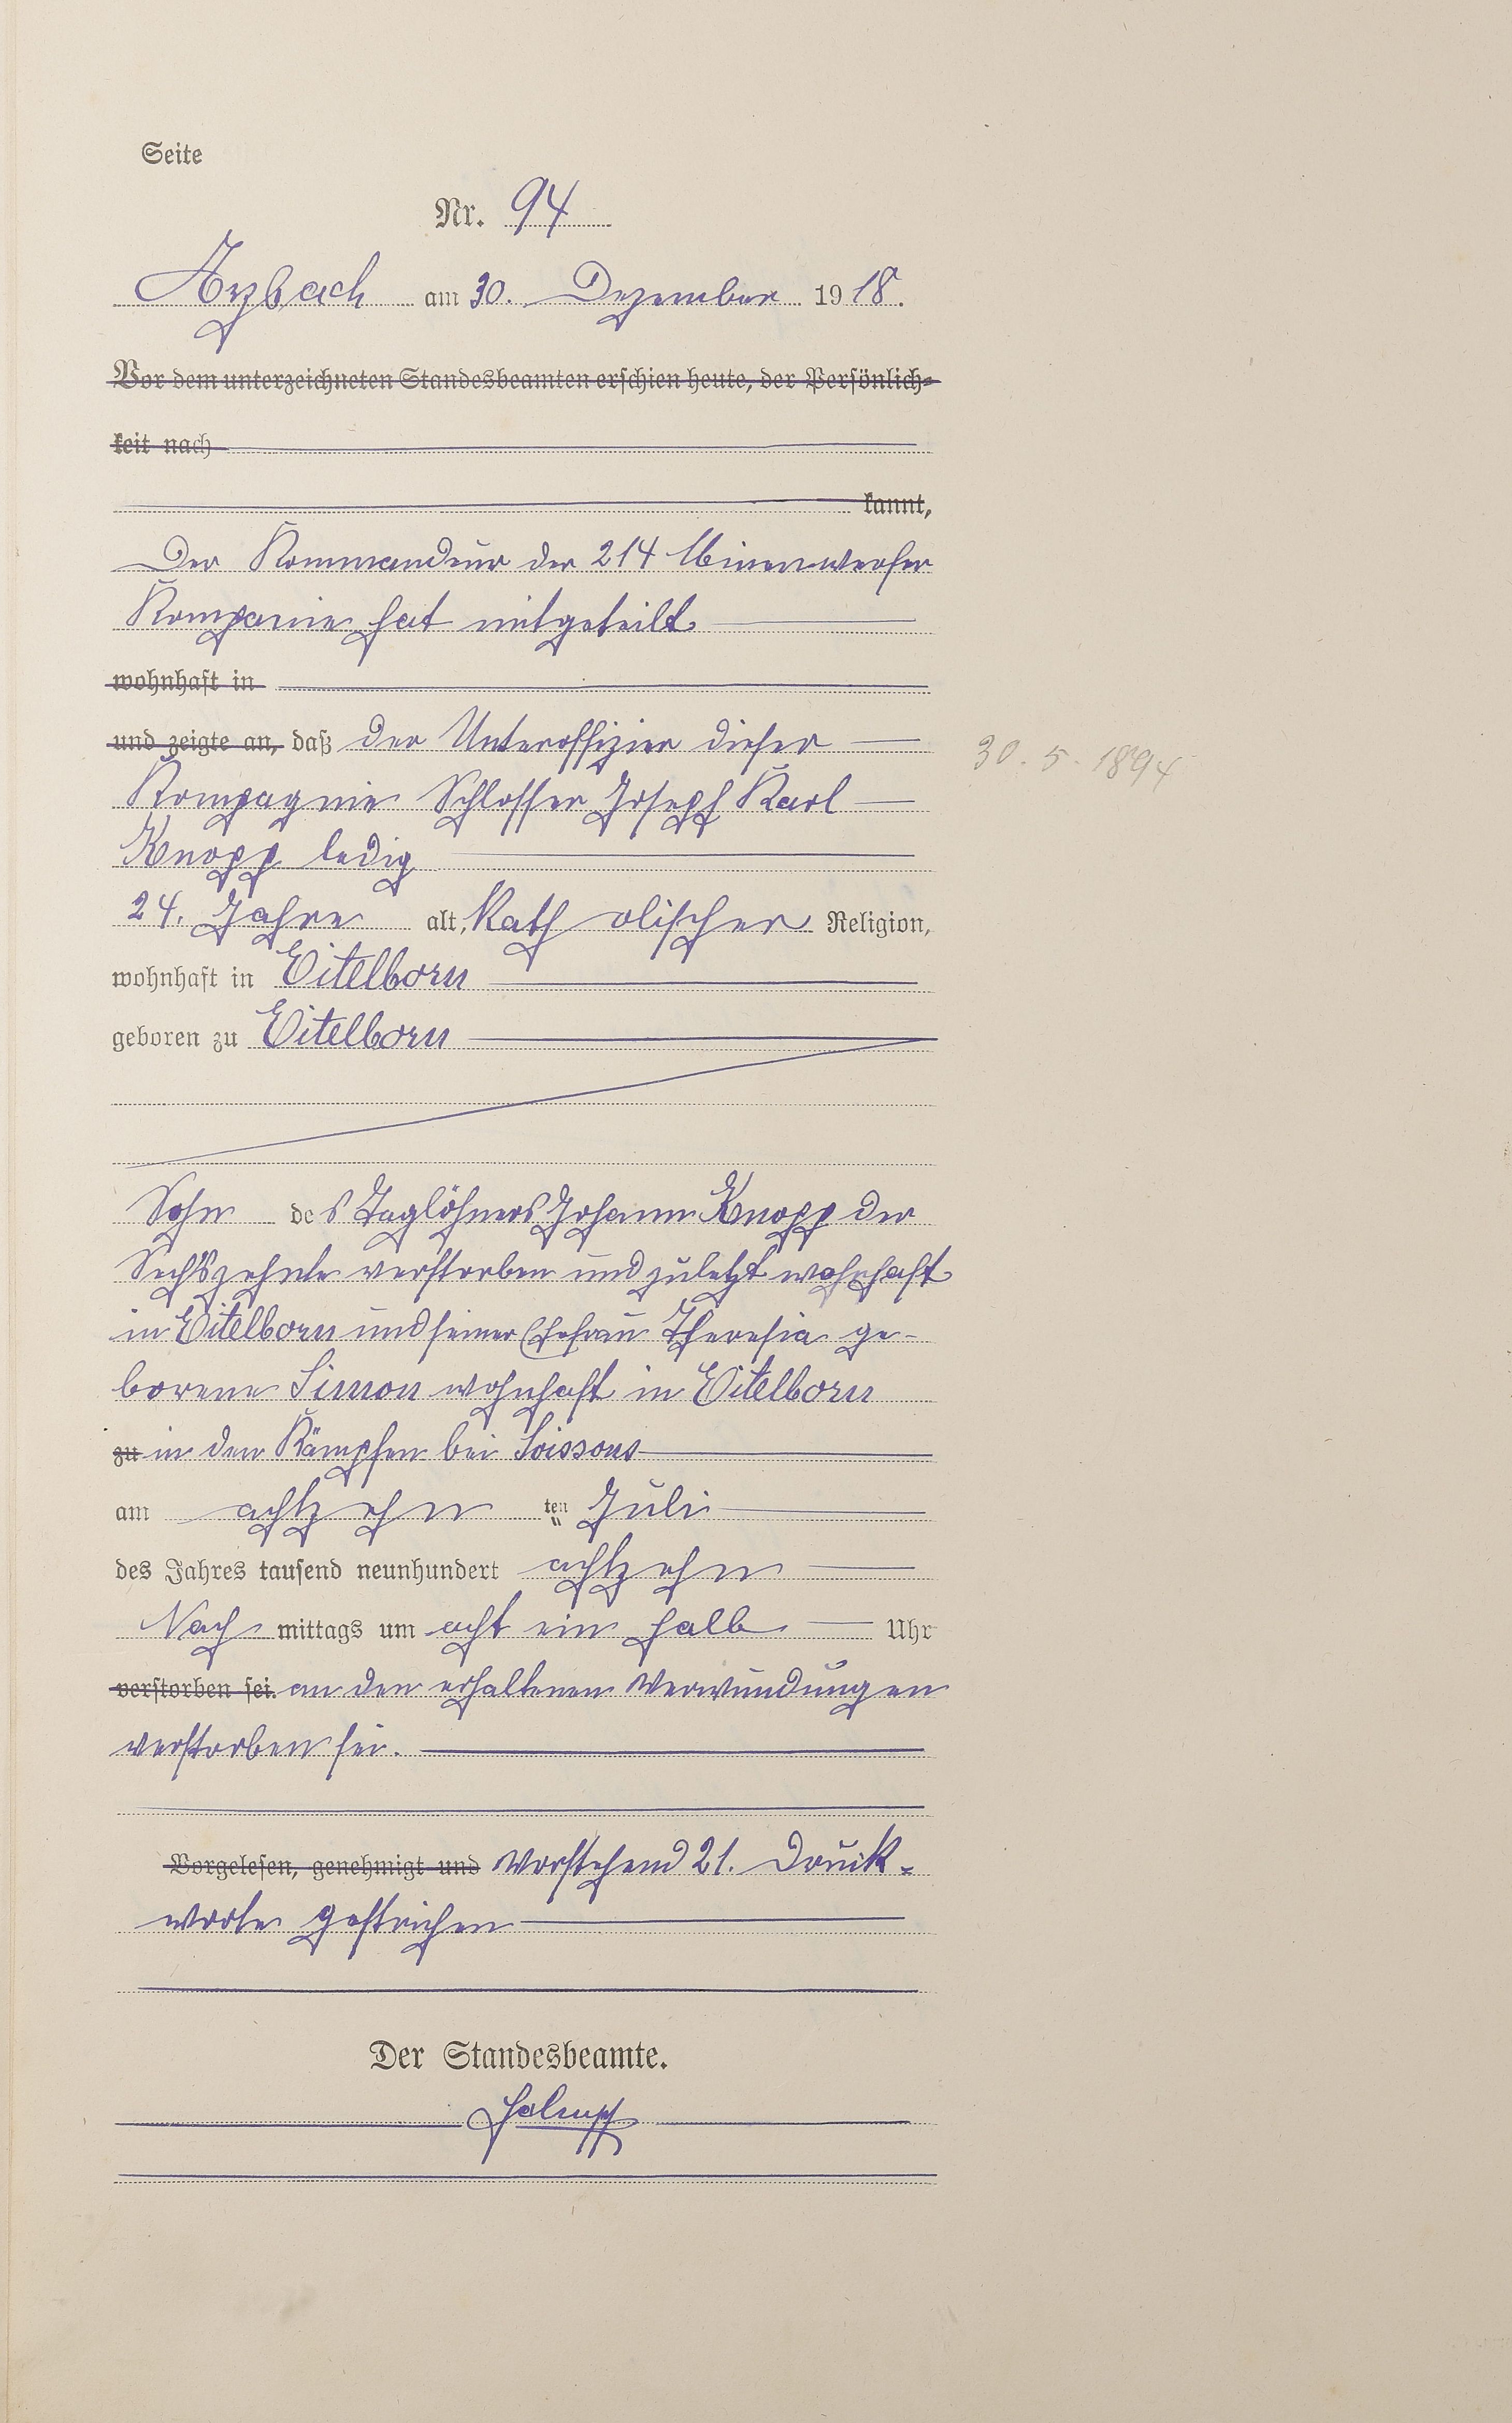 Seite
Nr. 94
Arzbach am 30. Dezember 1918.
Vor dem unterzeichneten Standesbeamten erschien heute, der Persönlich-
keit nach
kannt,
Der Kommandeur der 214 Minenwerfer
Kompanie hat mitgeteilt
wohnhaft in
und zeigte an, daß der Unteroffizier dieser
30.5.1894
Kompagnie Schlosser Joseph Karl
Knopp ledig
24. Jahre alt, katholischer Religion,
wohnhaft in Eitelborn
geboren zu Eitelborn
Sohn des Taglöhners Johann Knopp der
Sechszehnte verstorben und zuletzt wohnhaft
in Eitelborn und seiner Ehefrau Theresia ge-
borene Simon wohnhaft in Eitelborn
zu in den Kämpfen bei Soissons
am achtzehn ten Juli
des Jahres tausend neunhundert achtzehn
Nach mittags um acht ein halb Uhr
verstorben sei. an den erhaltenen Verwundungen
verstorben sei.
Vorgelesen, genehmigt und Vorstehend 21. Druck-
worte gestrichen
Der Standesbeamte.